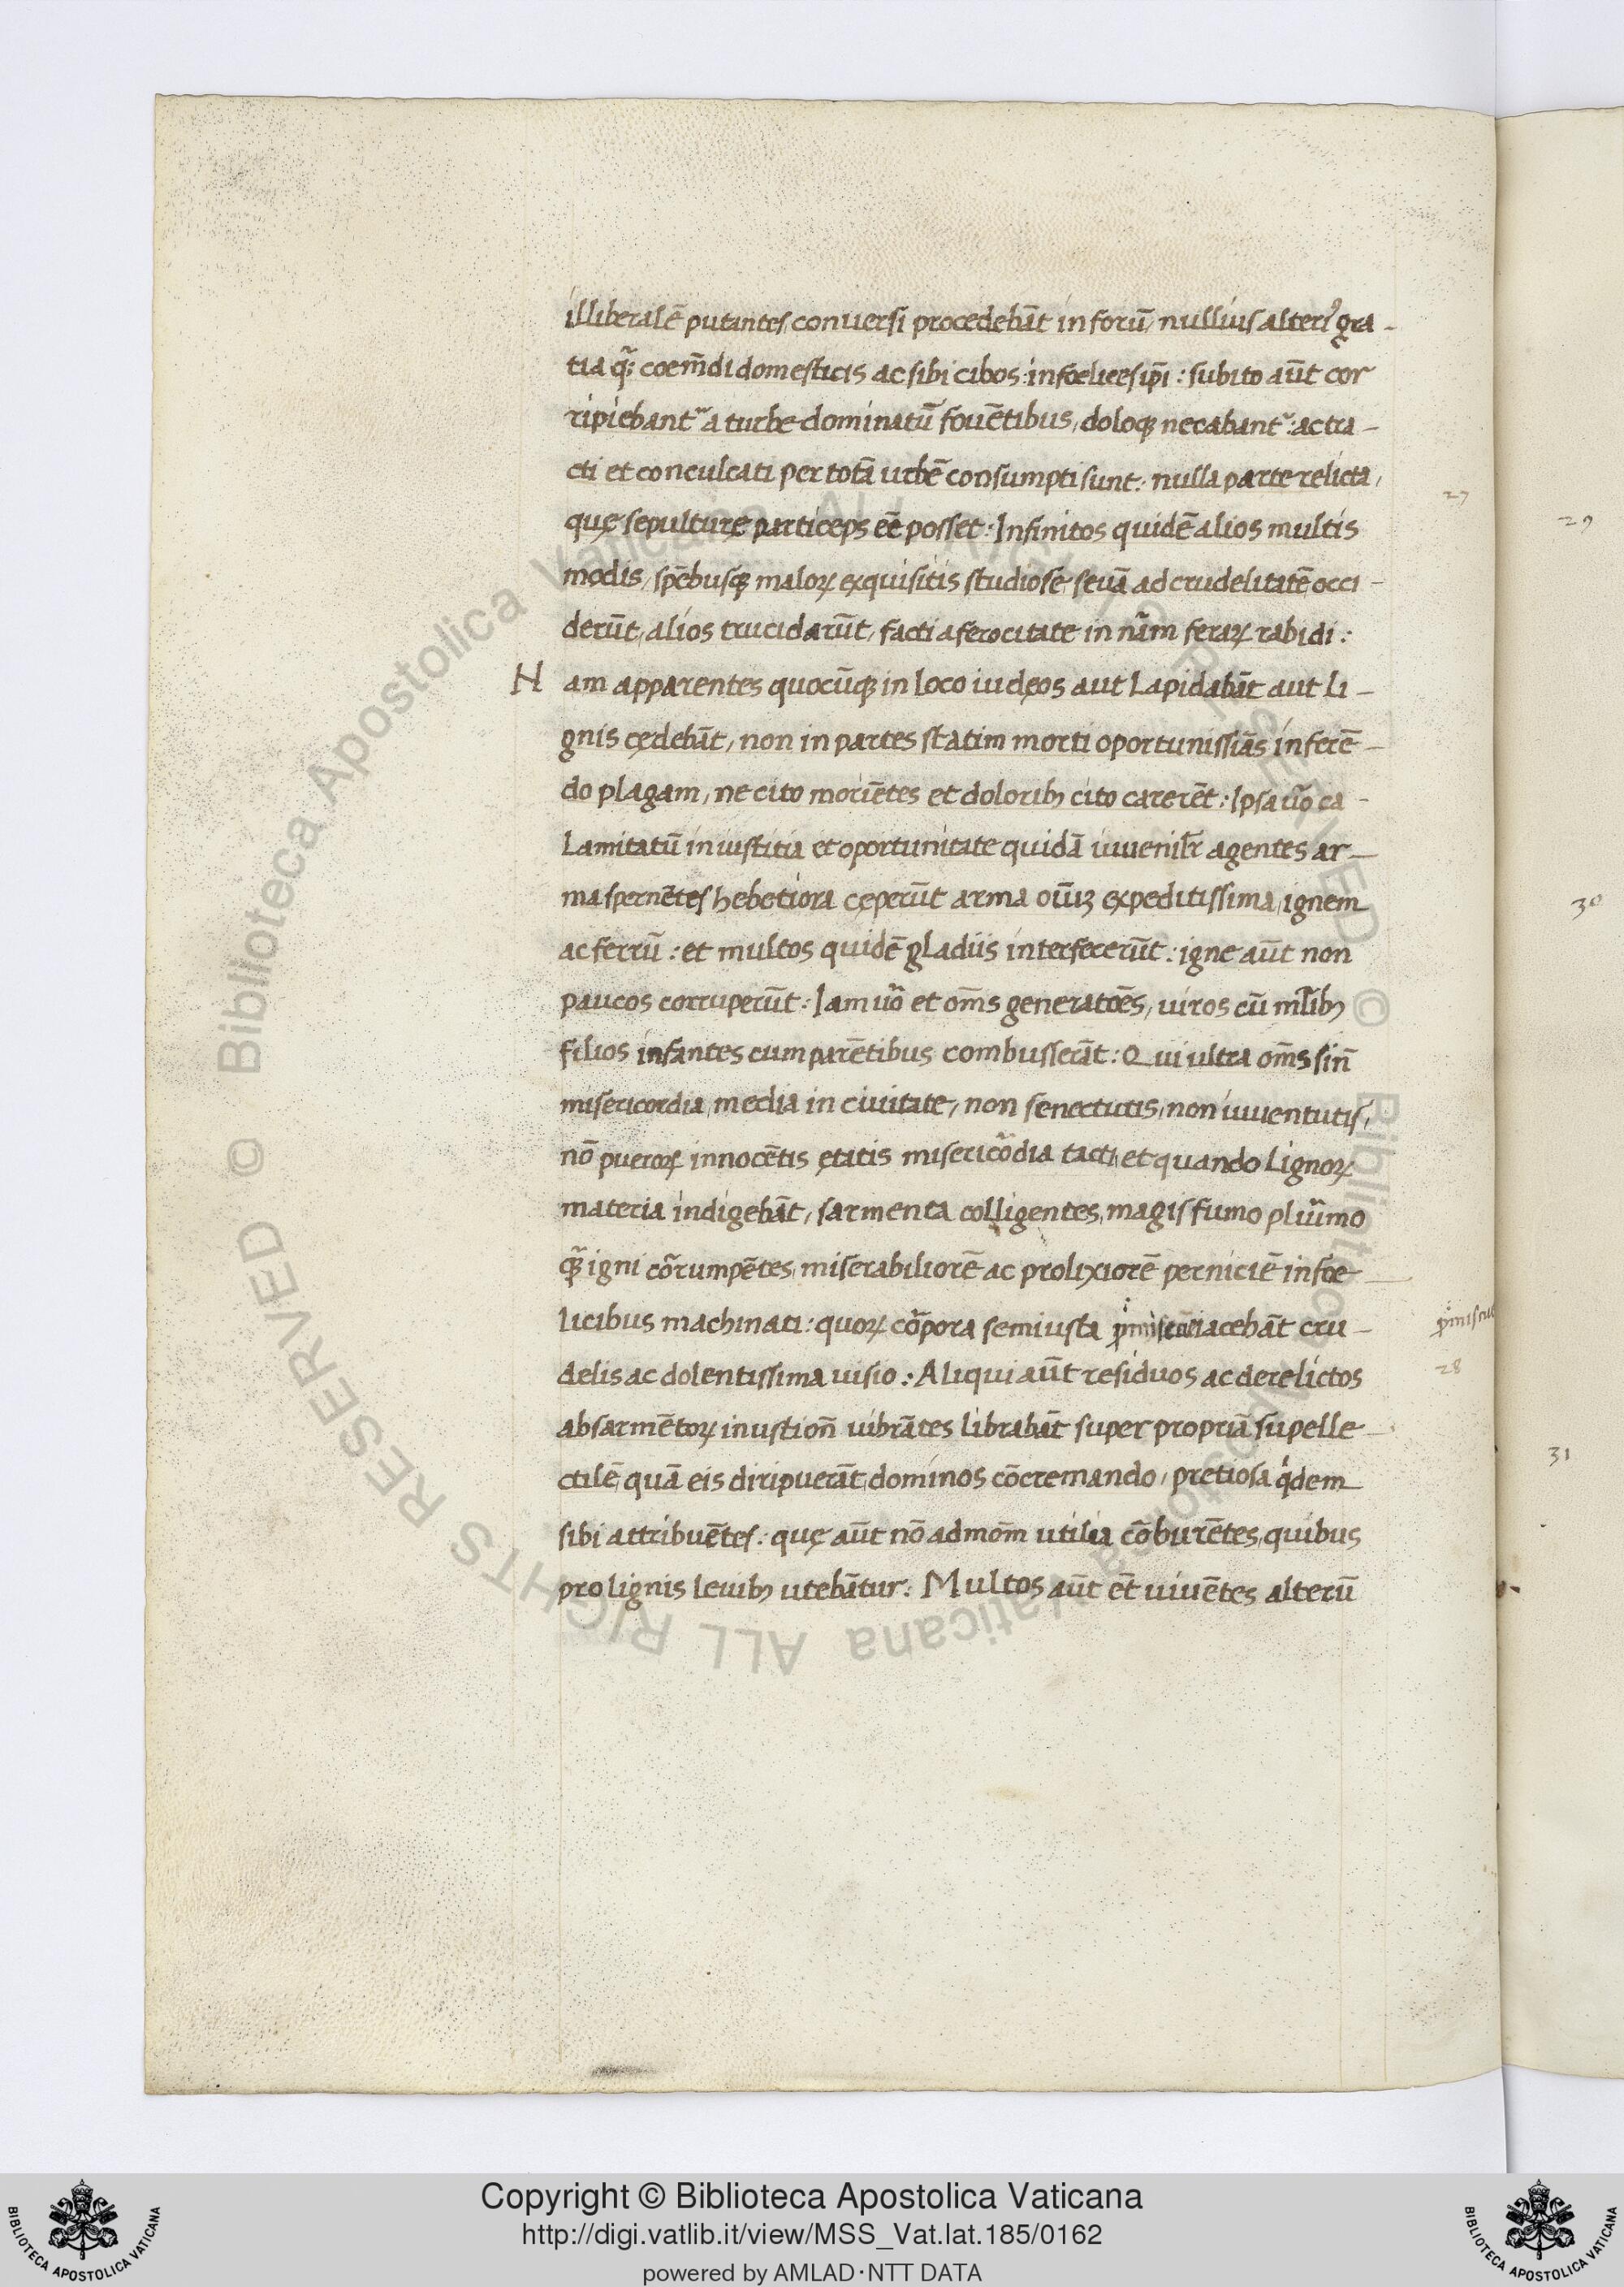 illiberalē putantes, conuersi procedebāt in forū, nullius alteriꝰ gra-
tia q̃ꝫ coem̄di domesticis ac sibi cibos: infoelices ip̄i: subito aūt cor
ripiebant᷑ a turbe dominatū fouētibus, doloqꝫ necabant᷑: ac tra-
cti et conculcati per totā urbē consumpti sunt: nulla parte relicta,
quę sepulturę particeps eē posset: Infinitos quidē alios multis
modis, spēbusqꝫ maloꝝ exquisitis studiose, seuā ad crudelitatē occi-
derūt, alios trucidarūt, facti a ferocitate in nām feraꝝ rabidi:
N am apparentes quocūqꝫ in loco iudęos aut lapidabāt aut li-
gnis cędebāt, non in partes statim morti oportunissiās inferē-
do plagam, ne cito moriētes et doloribꝫ cito carerēt: Ipsa ūo ca-
lamitatū iniustitia et oportunitate quidā iuuenilr̄ agentes ar-
ma spernētes hebetiora cęperūt arma oīūꝫ expeditissima, ignem
ac ferrū: et multos quidē gladiis interfecerūt: igne aūt non
paucos corruperūt: Iam ūo et om̄s generatōes, uiros cū ml̄ibꝫ
filios infantes cum parētibus combusserāt: Qui ultra om̄s sin̄
misericordia, media in ciuitate, non senectutis, non iuuentutis,
nō pueroꝝ innocētis ętatis misericōdia tacti, et quando lignoꝝ
materia indigebāt, sarmenta colligentes, magis fumo plūimo
q̃ꝫ igni cōrumpētes, miserabiliorē ac prolixiorē perniciē infoe-
licibus machinati: quoꝝ cōpora semiusta ꝓmiscue iacebāt cru-
delis ac dolentissima uisio: Aliqui aūt residuos ac derelictos
ab sarmētoꝝ inustion̄ uibrātes librabāt super propriā supelle-
ctilē, quā eis diripuerāt, dominos cōcremando, pretiosa qͥdem
sibi attribuētes: quę aūt nō admom̄ utilia cōburētes, quibus
pro lignis leuibꝫ utebātur: Multos aūt ēt uiuētes alterū
27
28
29
30
31
Copyright © Biblioteca Apostolica Vaticana
http://digi.vatlib.it/view/MSS_Vat.lat.185/0162
powered by AMLAD·NTT DATA
BIBLIOTECA APOSTOLICA VATICANA
BIBLIOTECA APOSTOLICA VATICANA